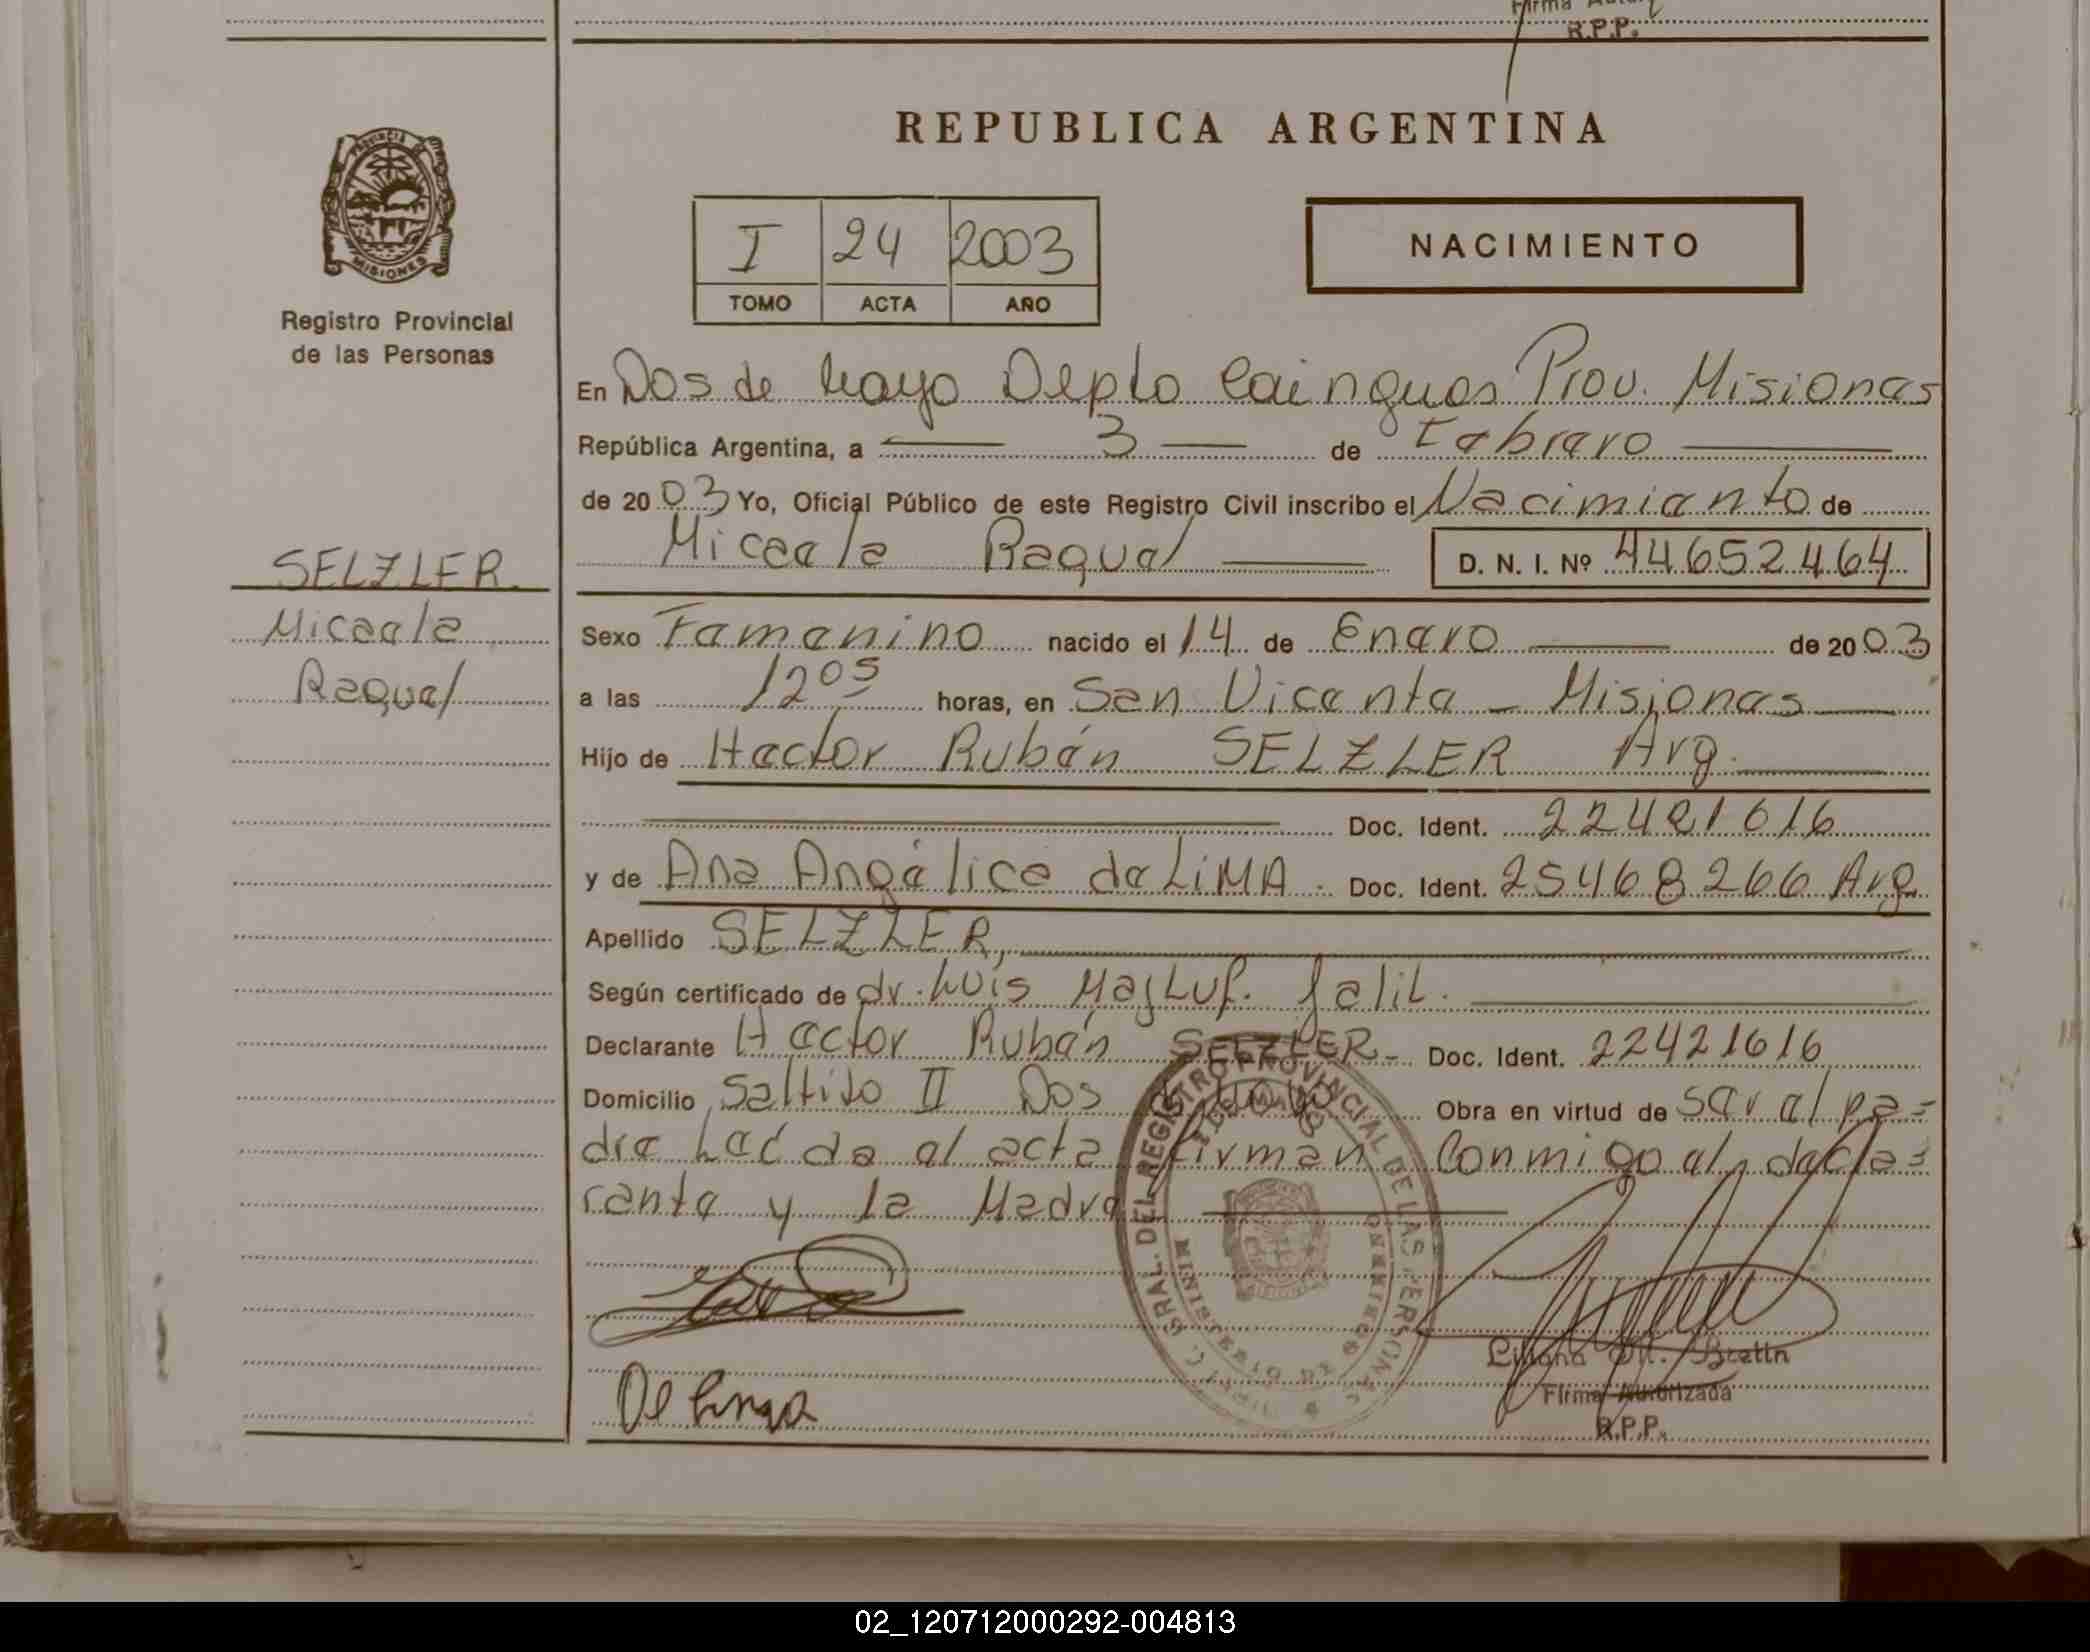 Firma Autoriz
R.P.P.
REPUBLICA ARGENTINA
PROVINCIA DE
MISIONES
Registro Provincial
de las Personas
I 24 2003
TOMO ACTA AÑO
NACIMIENTO
En Dos de Mayo Depto Cainguas Prov. Misiones
República Argentina, a 3 de Febrero
de 2003 Yo, Oficial Público de este Registro Civil inscribo el Nacimiento de
Micaela Raquel D. N. I. Nº 44652464
SELZLER
Micaela
Raquel
Sexo Femenino nacido el 14 de Enero de 2003
a las 12 05 horas, en San Vicente - Misiones
Hijo de Hector Rubén SELZLER Arg.
Doc. Ident. 22421616
y de Ana Angélica de LiMA. Doc. Ident. 25468266 Arg
Apellido SELZLER,
Según certificado de dr. Luis Majluf. Jalil.
Declarante Hector Rubén SELZLER- Doc. Ident. 22421616
Domicilio Saltito II Dos de Mayo Obra en virtud de ser el pa=
dre Leída el acta firman Conmigo el decla=
rante y la Madre
DEL REGISTRO PROVINCIAL DE LAS PERSONAS
MINISTERIO DE GOBIERNO
De Lima
Liliana M. Bretin
Firma Autorizada
R.P.P.
02_120712000292-004813